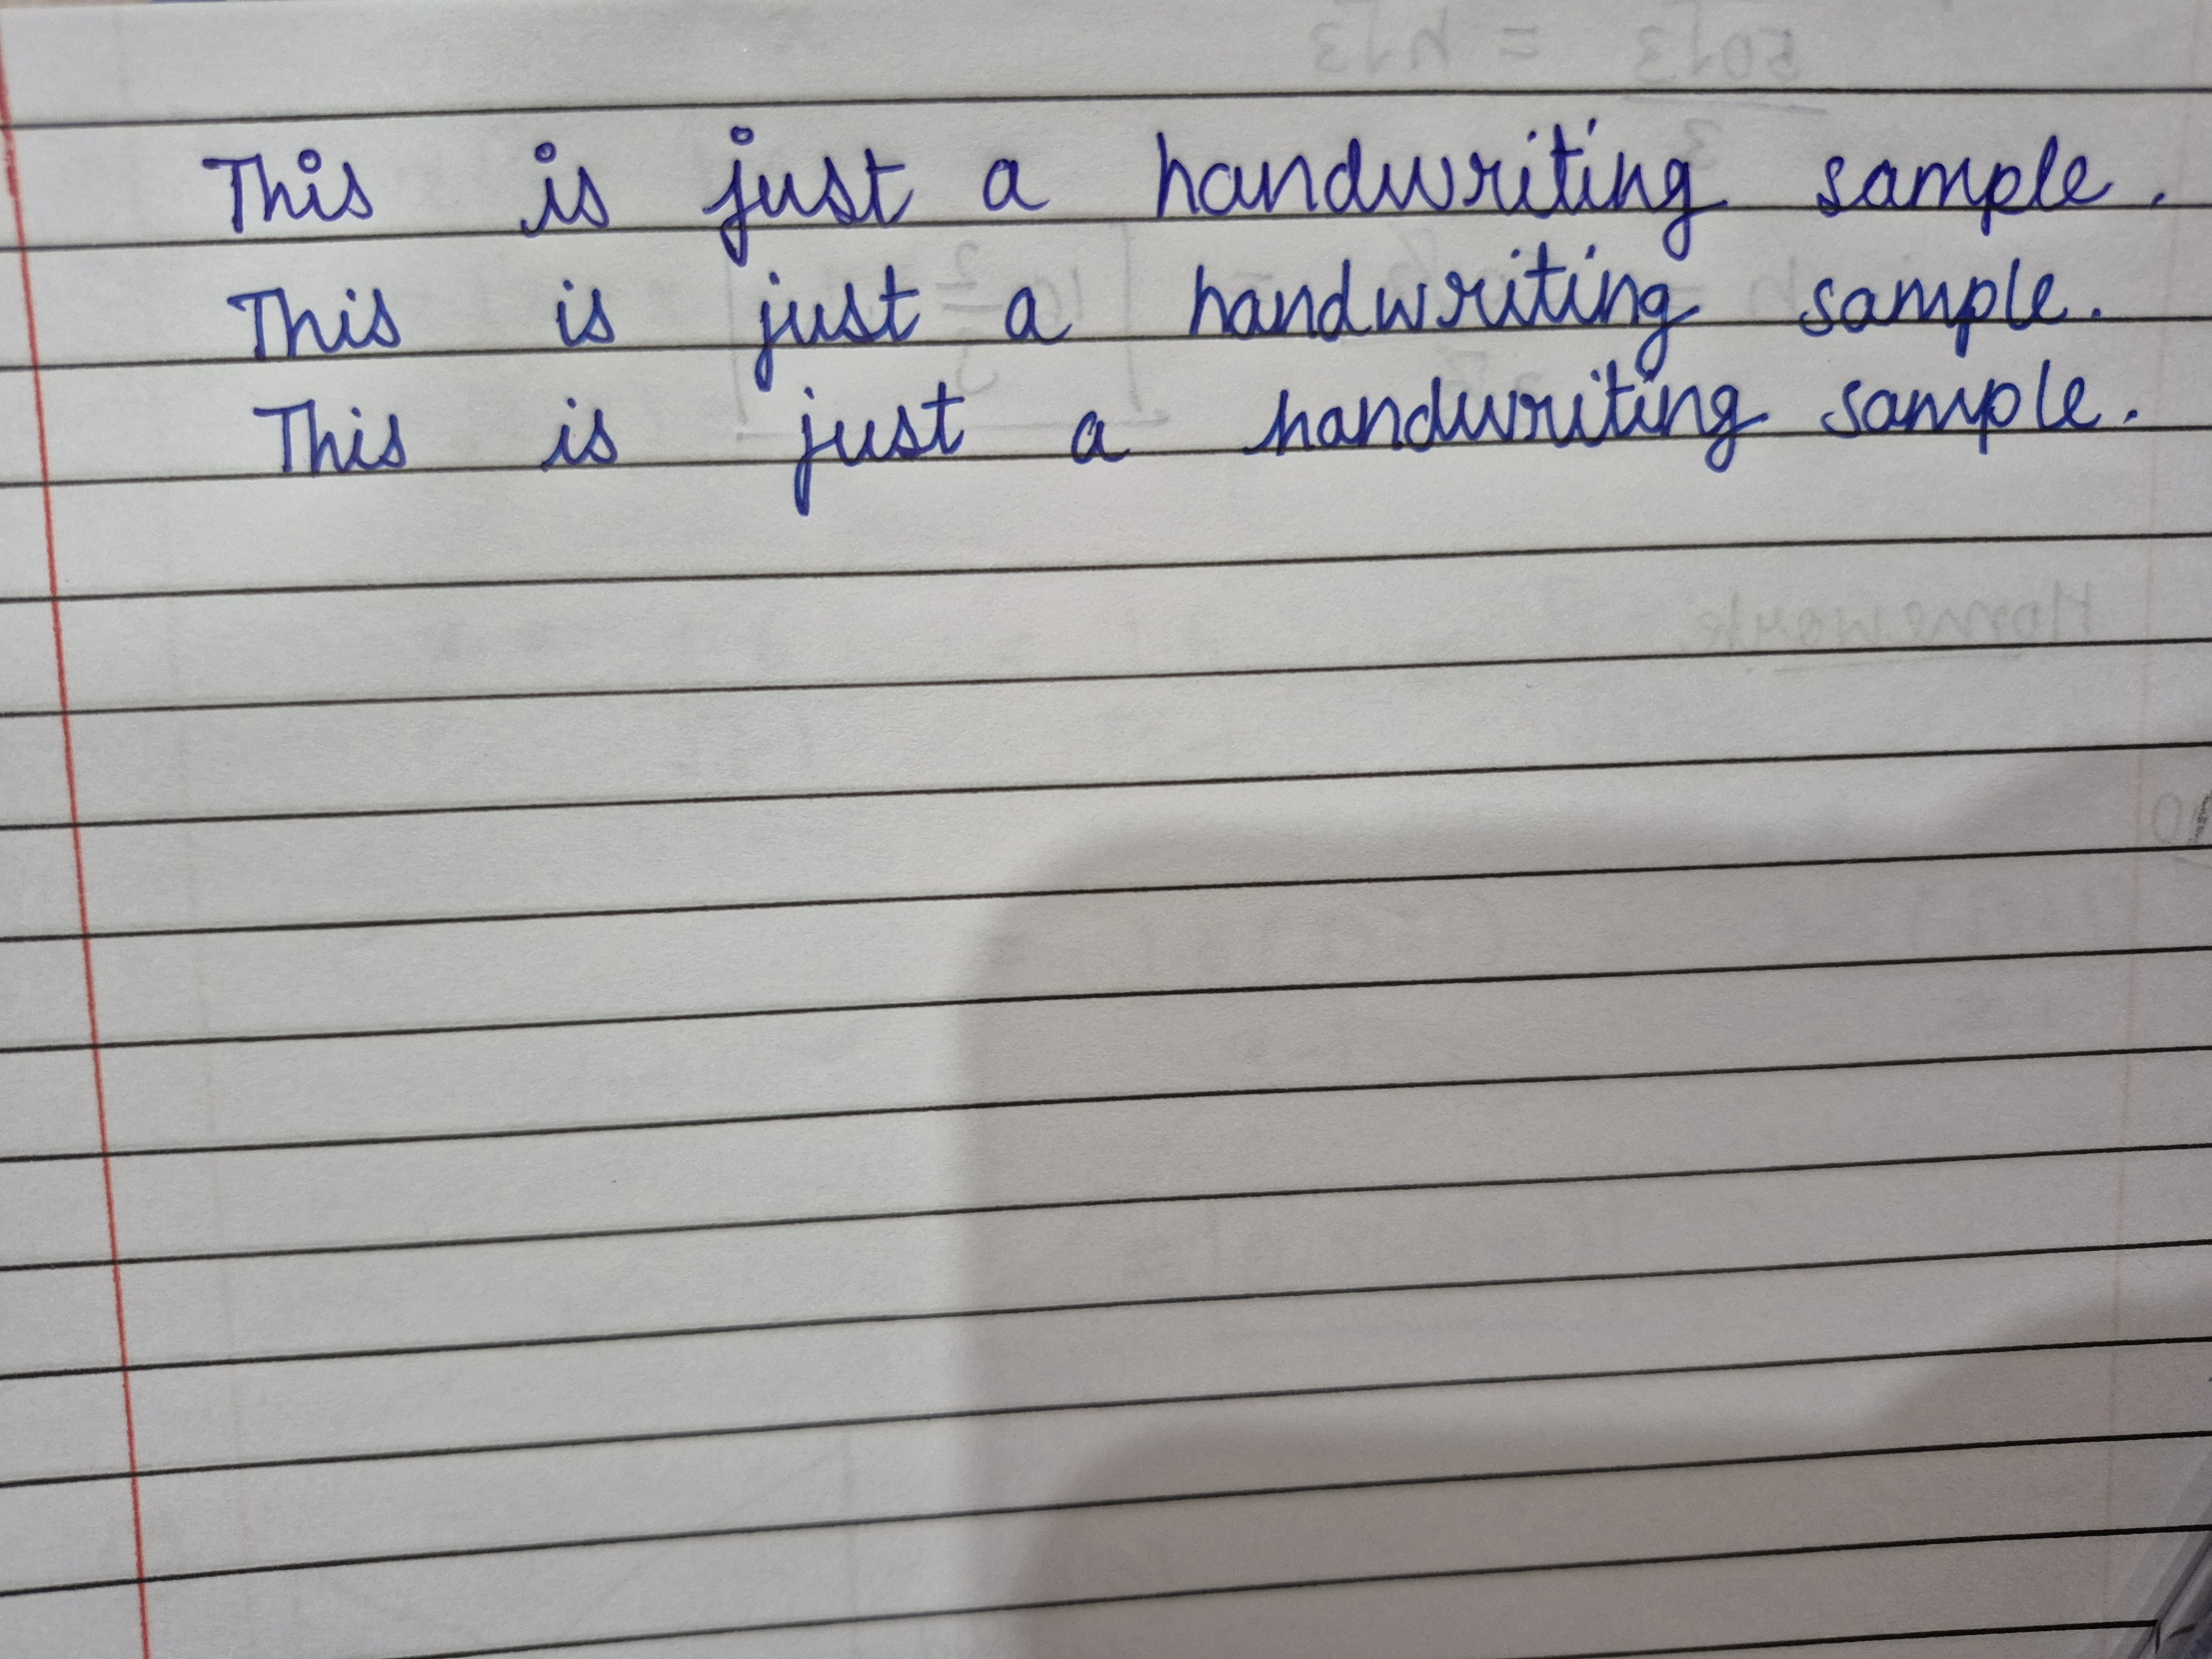 This is just a handwriting sample.
This is just a handwriting sample.
This is just a handwriting sample.